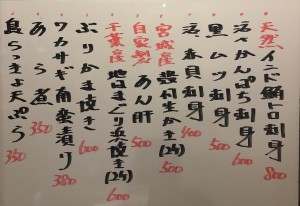 天然インド鮪トロ刺身 800
活〆かんぱち刺身 600
黒ムツ刺身 500
貝刺身 400
宮城産 殻付生かき(2ケ) 500
自家製 あん肝 500
千葉産 地はまぐり浜焼き(2ケ) 600
ぶりかま焼き 600
ワカサギ南蛮漬け 380
あら煮 350
島らっきょ天ぷら 350